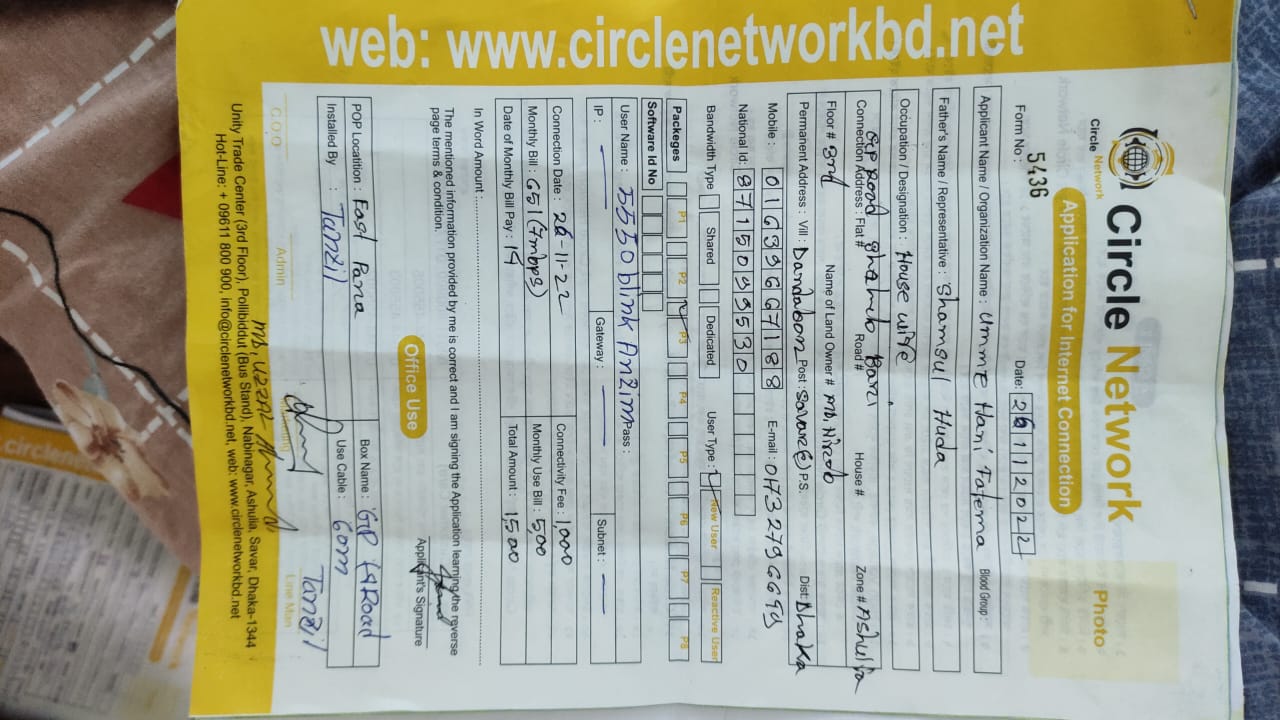 Circle Network
Circle Network
Application for Internet Connection
Photo
Form No : 5436 Date: 26112022
Applicant Name / Organization Name : Umme Hani Fatema Blood Group:
Father's Name / Representative : Shamsul Huda
Occupation / Designation : House wife
Connection Address : Flat # Road # House # Zone # Ashulia
Floor # 3rd Name of Land Owner # Md,
Permanent Address : Vill : Post : Savar P.S. Dist: Dhaka
Mobile : 01633667188 E-mail :
National Id: 8715099530
Bandwidth Type Shared Dedicated User Type : New User Reactive User
Packeges P1 P2 P3 P4 P5 P6 P7 P8
Software Id No
User Name : Pass :
IP : Gateway : Subnet :
Connection Date : 26-11-22 Connectivity Fee : 1,000
Monthly Bill : Monthly Use Bill : 500
Date of Monthly Bill Pay : Total Amount : 1,500
In Word Amount :
The mentioned information provided by me is correct and I am signing the Application learning the reverse
page terms & condition.
Applicant's Signature
Office Use
POP Locatition : Box Name :
Installed By : Tanzil Use Cable : 60m
Tanzil
C.O.O Admin Line Man
Unity Trade Center (3rd Floor), Pollibiddut (Bus Stand), Nabinagar, Ashulia, Savar, Dhaka-1344
Hot-Line: + 09611 800 900, info@circlenetworkbd.net, web: www.circlenetworkbd.net
web: www.circlenetworkbd.net